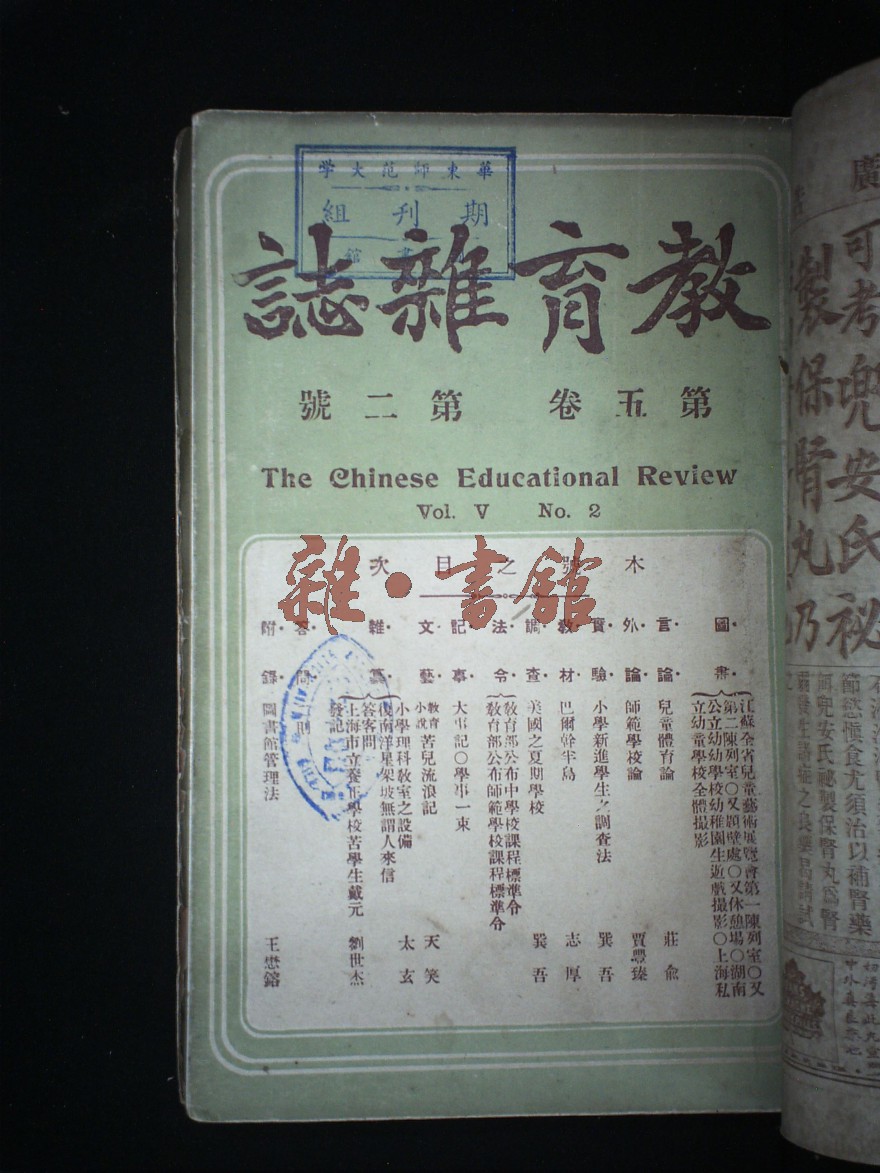 華東師范大学
期刊組
書館
教育雜誌
第五卷 第二號
The Chinese Educational Review
Vol. V No. 2
本號之目次
雜·書館
圖·畫·
江蘇全省兒童藝術展覽會第一陳列室○又
第二陳列室○又題壁處○又休憩場○湖南
公立幼幼學校幼稚園生遊戲撮影○上海私
立幼童學校全體撮影
言·論· 兒童體育論 莊俞
外·論· 師範學校論 賈豐臻
實·驗· 小學新進學生之調查法 巽吾
教·材· 巴爾幹半島 志厚
調·查· 美國之夏期學校 巽吾
法·令·
教育部公布中學校課程標準令
教育部公布師範學校課程標準令
記·事· 大事記○學事一束
文·藝· 教育小說 苦兒流浪記 天笑
雜·纂·
小學理科教室之設備 太玄
復南洋星架坡無謂人來信
答客問
上海市立養正學校苦學生戴元
發記 劉世杰
答·問·
附·錄· 圖書館管理法 王懋鎔
廣
可考兜安氏祕
製保腎丸乃
節慾愼食尤須治以補腎藥
兜安氏祕製保腎丸爲腎